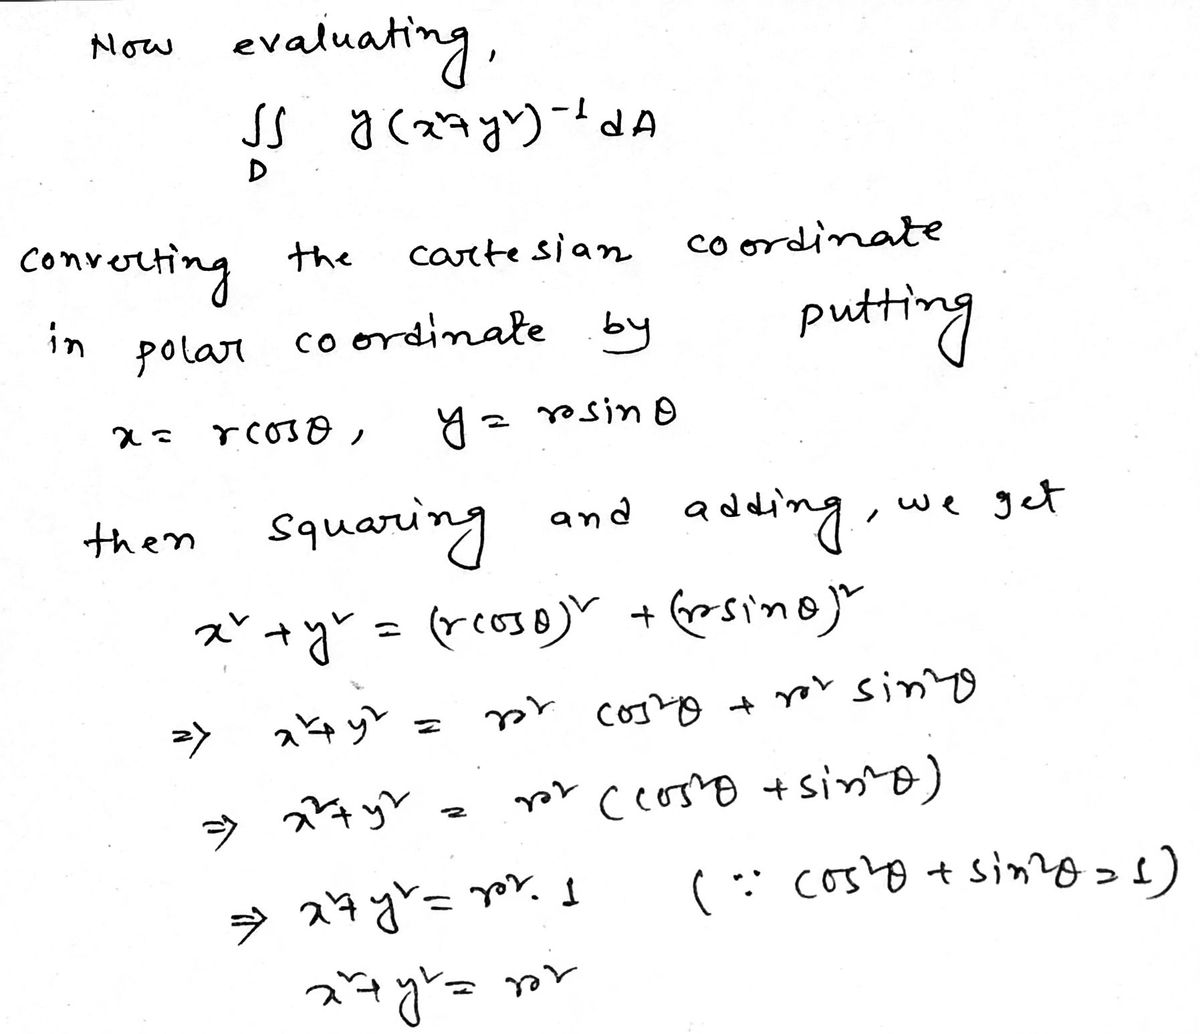 Now evaluating,
∬ y(x²+y²)⁻¹ dA
D
converting the cartesian coordinate
in polar coordinate by putting
x = rcosθ, y = rsinθ
then squaring and adding, we get
x² + y² = (rcosθ)² + (rsinθ)²
⇒ x²+y² = r² cos²θ + r² sin²θ
⇒ x²+y² = r² (cos²θ + sin²θ)
⇒ x²+y² = r². 1 (∵ cos²θ + sin²θ = 1)
x²+y² = r²